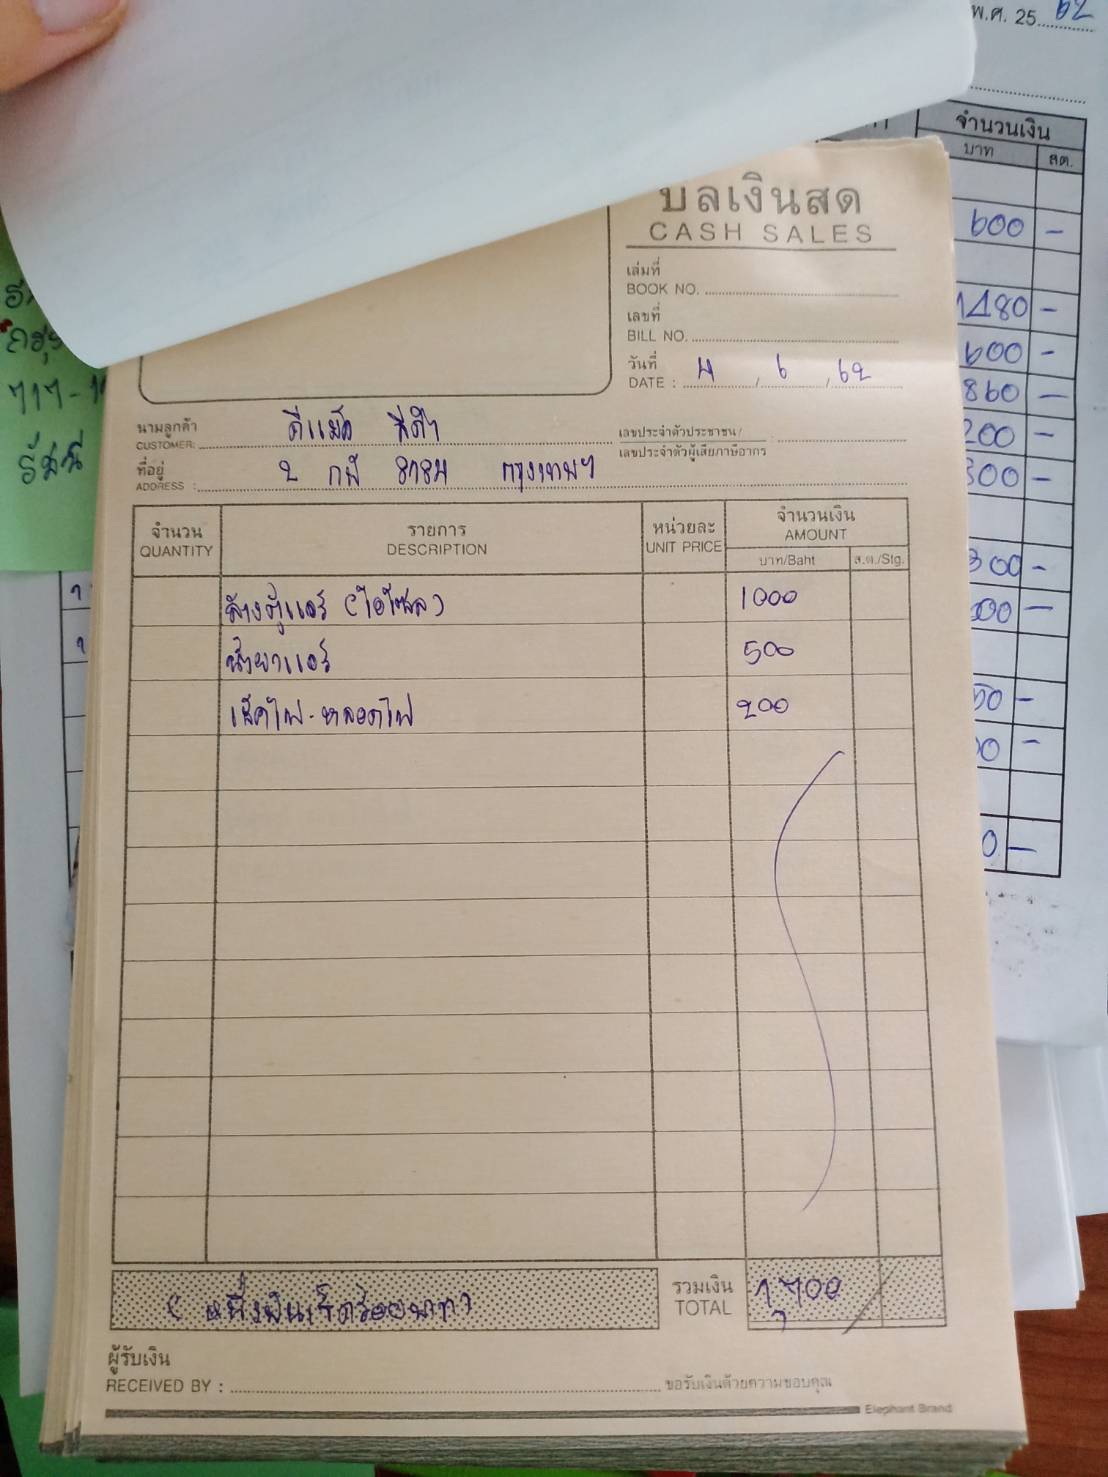 พ.ศ. 25 62
จำนวนเงิน
บาท สต.
600 -
1480 -
600 -
860 -
200 -
300 -
300 -
00 -
50 -
00 -
0 -
บิลเงินสด
CASH SALES
เล่มที่
BOOK NO.
เลขที่
BILL NO.
วันที่
DATE : 4 / 6 / 62
นามลูกค้า
CUSTOMER: ดีแม็ก
เลขประจำตัวประชาชน/
เลขประจำตัวผู้เสียภาษีอากร
ที่อยู่
ADDRESS : 2 กฬ กรุงเทพฯ
จำนวน รายการ หน่วยละ จำนวนเงิน
QUANTITY DESCRIPTION UNIT PRICE AMOUNT
บาท/Baht ส.ต./Stg.
ล้างตู้แอร์ (ไอโซล) 1000
น้ำยาแอร์ 500
เช็คไฟ-หลอดไฟ 200
(หนึ่งพันเจ็ดร้อยบาท)
รวมเงิน
TOTAL 1,700
ผู้รับเงิน
RECEIVED BY : ขอรับเงินด้วยความขอบคุณ
Elephant Brand